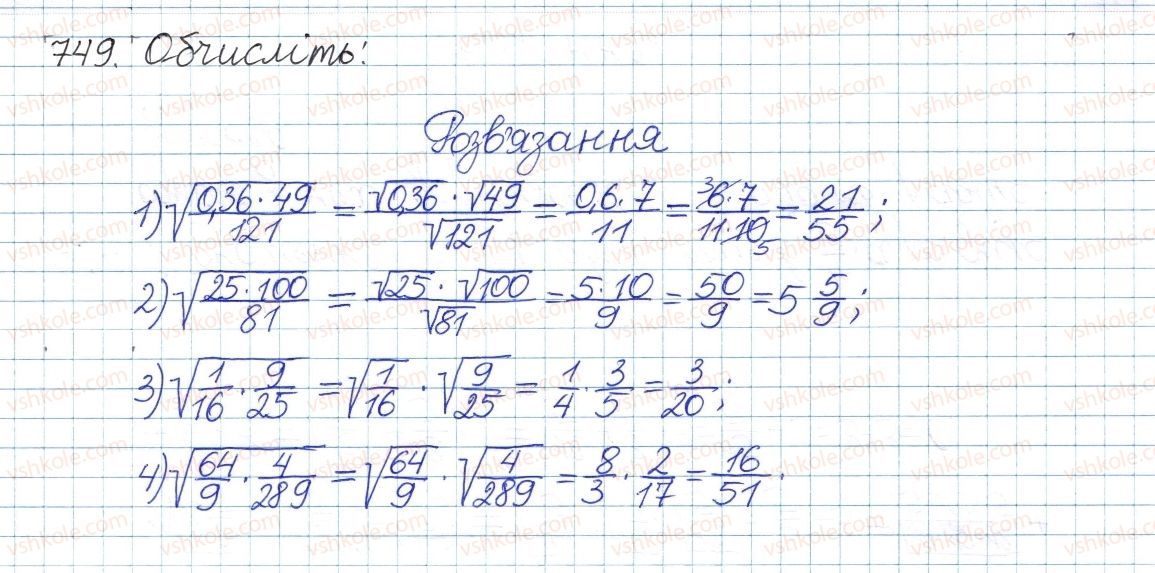 749. Обчисліть:
Розв'язання
1) √(0,36·49/121) = √0,36·√49/√121 = 0,6·7/11 = ³6·7/11·10₅ = 21/55;
2) √(25·100/81) = √25·√100/√81 = 5·10/9 = 50/9 = 5 5/9;
3) √(1/16·9/25) = √(1/16)·√(9/25) = 1/4·3/5 = 3/20;
4) √(64/9·4/289) = √(64/9)·√(4/289) = 8/3·2/17 = 16/51.